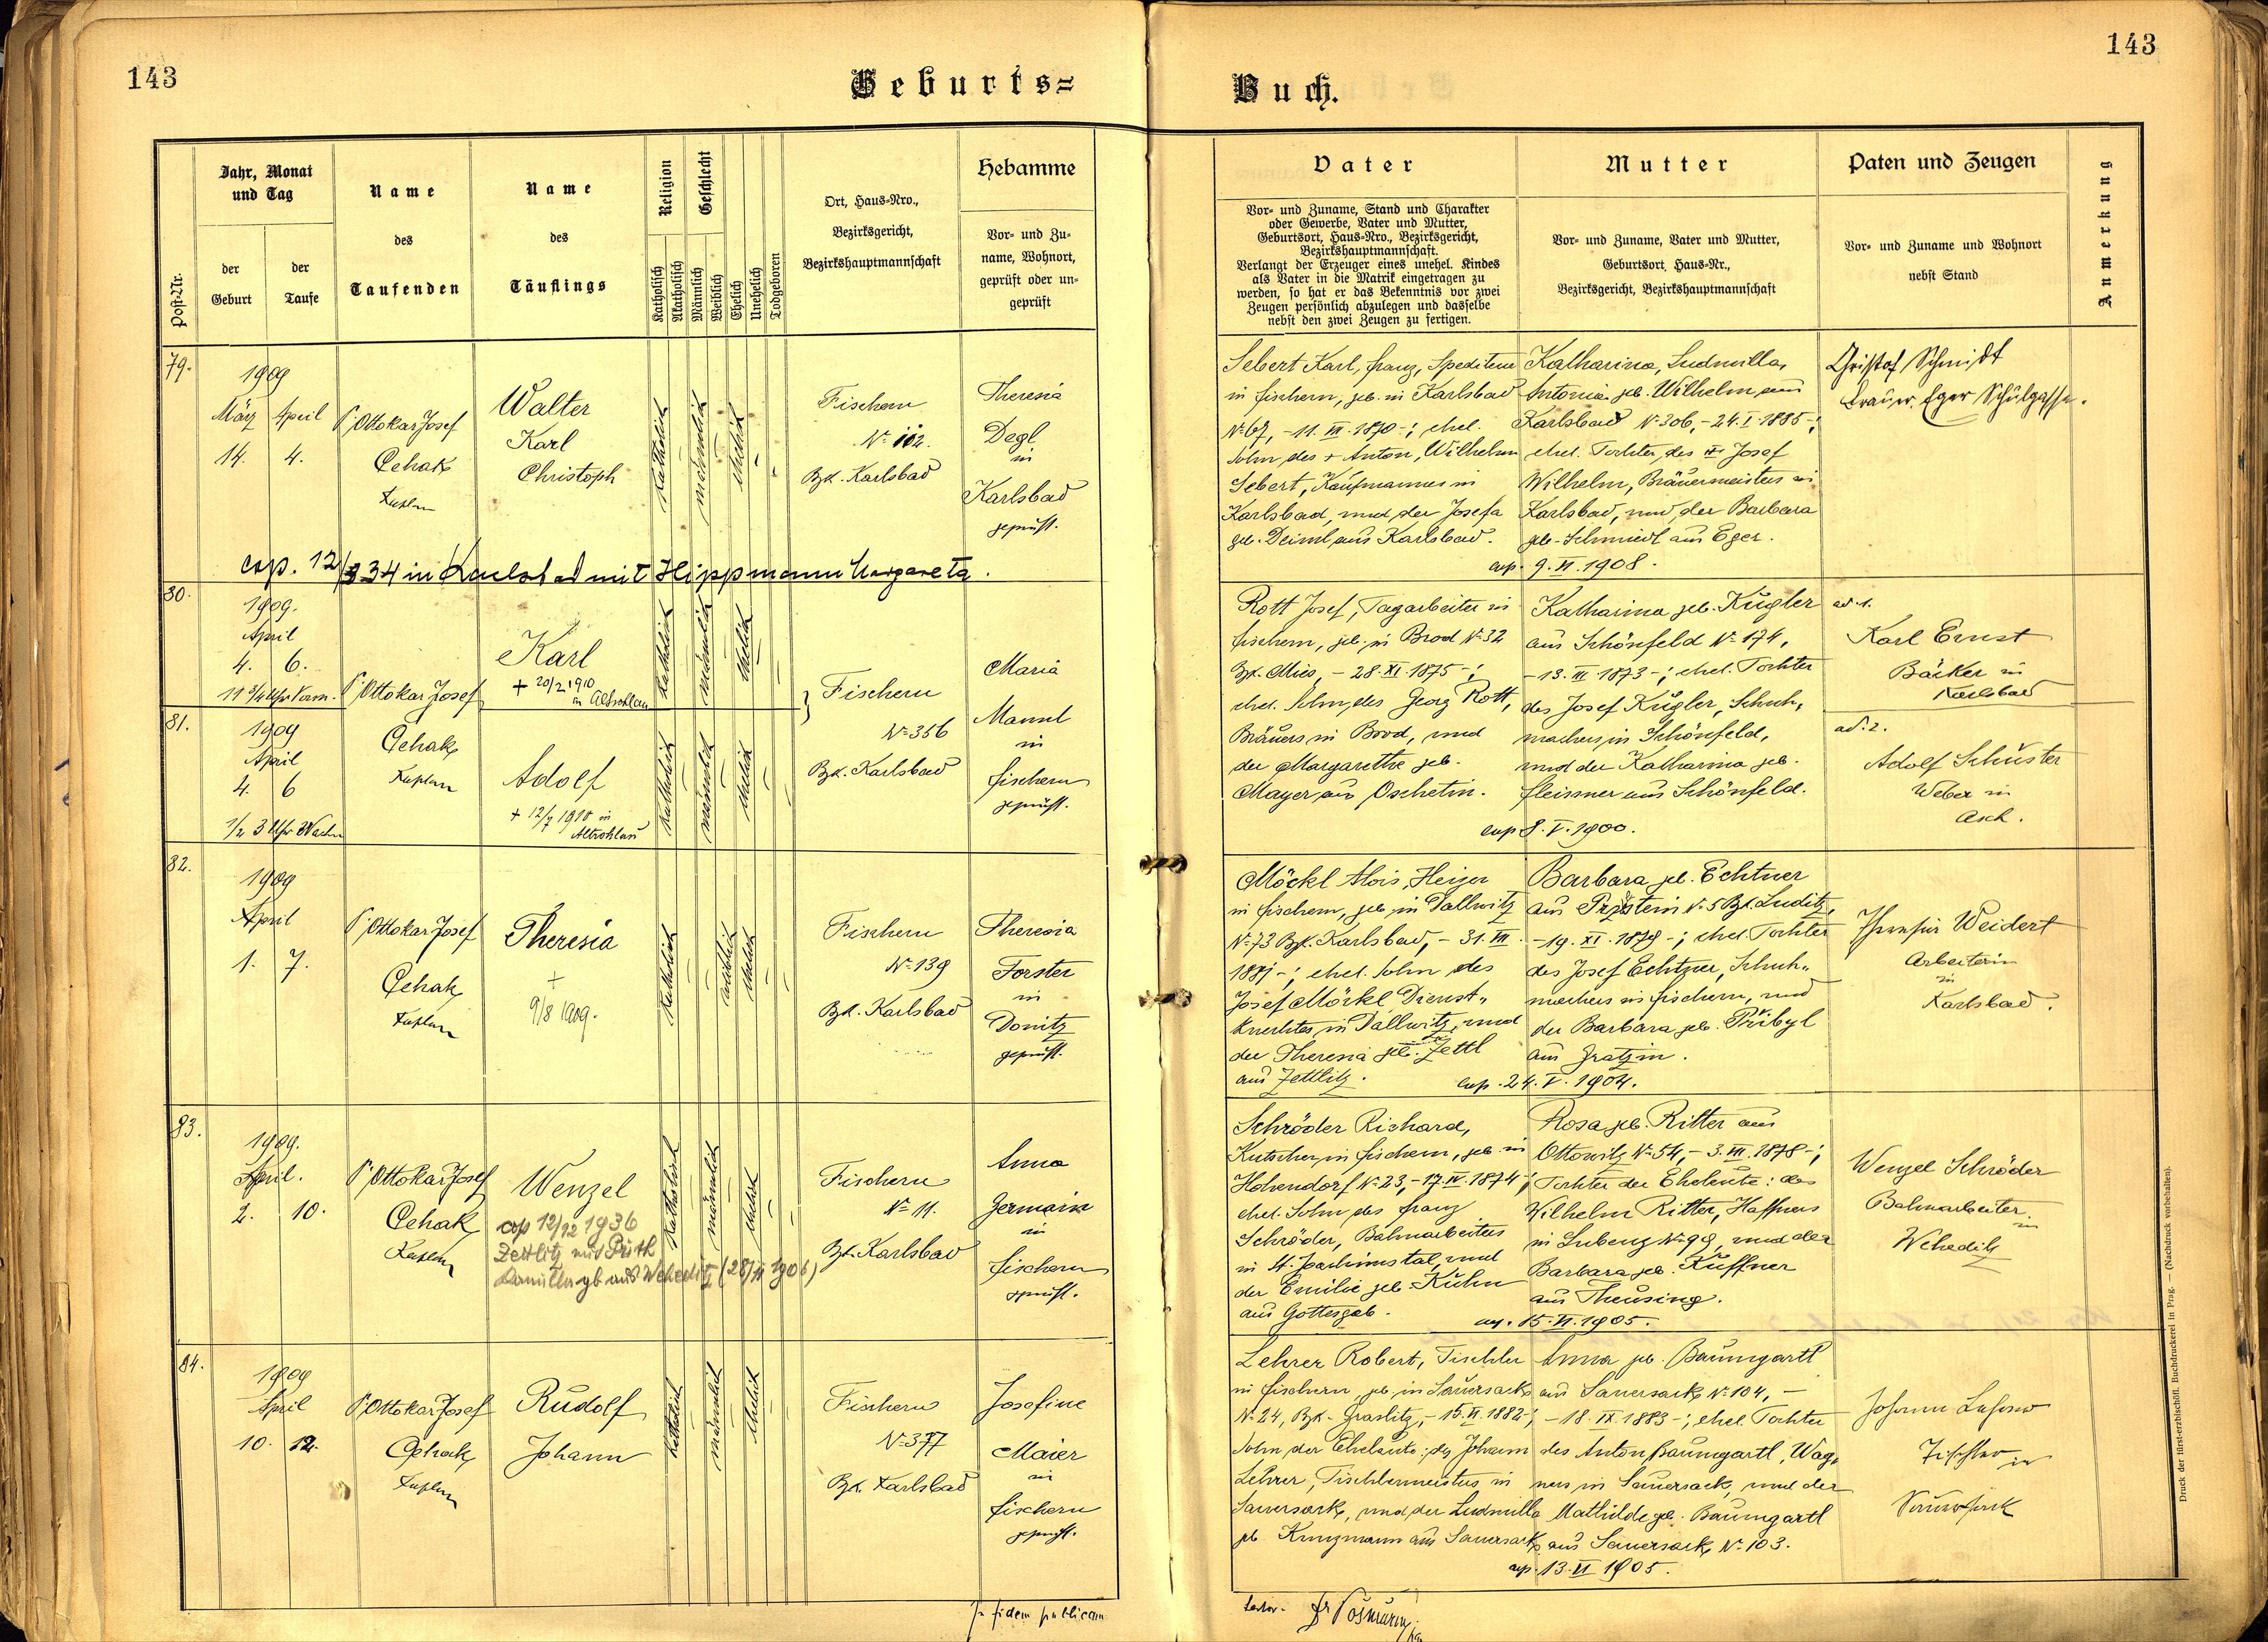 143
Geburts=
Buch.
143
Post-Nr.
Jahr, Monat
und Tag
der
Geburt
der
Taufe
Name
des
Taufenden
Name
des
Täuflings
Religion
Katholisch
Akatholisch
Geschlecht
Männlich
Weiblich
Ehelich
Unehelich
Todgeboren
Ort, Haus-Nro.,
Bezirksgericht,
Bezirkshauptmannschaft
Hebamme
Vor- und Zu-
name, Wohnort,
geprüft oder un-
geprüft
Vater
Vor- und Zuname, Stand und Charakter
oder Gewerbe, Vater und Mutter,
Geburtsort, Haus-Nro., Bezirksgericht,
Bezirkshauptmannschaft.
Verlangt der Erzeuger eines unehel. Kindes
als Vater in die Matrik eingetragen zu
werden, so hat er das Bekenntnis vor zwei
Zeugen persönlich abzulegen und dasselbe
nebst den zwei Zeugen zu fertigen.
Mutter
Vor- und Zuname, Vater und Mutter,
Geburtsort, Haus-Nr.,
Bezirksgericht, Bezirkshauptmannschaft
Paten und Zeugen
Vor- und Zuname und Wohnort
nebst Stand
Anmerkung
79.
1909
März April
14. 4.
P. Ottokar Josef
Cehak
Kaplan
Walter
Karl
Christoph
katholisch
männlich
ehelich
Fischern
No 112.
Bzk. Karlsbad
Theresia
Degl
in
Karlsbad
geprüft.
Sebert Karl, Franz, Spediteur
in Fischern, geb. in Karlsbad
No 67, - 11. VII. 1870 -; ehel.
Sohn des + Anton, Wilhelm
Sebert, Kaufmannes in
Karlsbad, und der Josefa
geb. Deiml aus Karlsbad.
Katharina, Ludmilla,
Antonia geb. Wilhelm aus
Karlsbad No 306, - 24. I. 1885 -;
ehel. Tochter des + Josef
Wilhelm, Bräuermeisters in
Karlsbad, und der Barbara
geb. Schmiedl aus Eger.
cop. 9. VI. 1908.
Christof Schmidt
Brauer. Eger Schulgasse.
cop. 12/3 34 in Karlsbad mit Hippmann Margareta.
80.
1909.
April
4. 6.
11 3/4 Uhr Vorm.
P. Ottokar Josef
Karl
+ 20/2 1910
in Altrohlau
katholisch
männlich
ehelich
81.
1909
April
4. 6
1/2 3 Uhr Nachm
Cehak
Kaplan
Adolf
+ 12/7 1910 in
Altrohlau
katholisch
männlich
ehelich
Fischern
No 356
Bzk. Karlsbad
Maria
Mannl
in
Fischern
geprüft.
Rott Josef, Tagarbeiter in
Fischern, geb. in Brod No 32
Bzk. Mies, - 28. XI. 1875 -;
ehel. Sohn des Georg Rott,
Bräuers in Brod, und
der Margarethe geb.
Mayer aus Oschetin.
Katharina geb. Kugler
aus Schönfeld No 174,
- 13. III 1873 -; ehel. Tochter
des Josef Kugler, Schuh,
machers in Schönfeld,
und der Katharina geb.
Fleissner aus Schönfeld.
cop 8. V. 1900.
ad. 1.
Karl Ernst
Bäcker in
Karlsbad
ad. 2.
Adolf Schuster
Weber in
Asch.
82.
1909
April
1. 7.
P. Ottokar Josef
Cehak
Kaplan
Theresia
+
9/8 1909.
katholisch
weiblich
ehelich
Fischern
No 139
Bzk. Karlsbad
Theresia
Forster
in
Donitz
geprüft.
Möckl Alois, Heizer
in Fischern, geb. in Dallwitz
No 73 Bzk. Karlsbad, - 31. VII.
1881 -; ehel. Sohn des
Josef Möckl Dienst-
knechtes in Dallwitz, und
der Theresia geb. Zettl
aus Zettlitz.
Barbara geb. Echtner
aus No 5 Bzk. Luditz,
- 19. XI. 1879 -; ehel. Tochter
des Josef Echtner, Schuh-
machers in Fischern, und
der Barbara geb. Přibyl
aus Gratzin.
cop. 24. V. 1904.
Weidert
Arbeiterin
in
Karlsbad.
83.
1909.
April.
2. 10.
P. Ottokar Josef
Cehak
Kaplan
Wenzel
cop 12/12 1936
Zettlitz mit
geb aus Weheditz (28/ 1906)
katholisch
männlich
ehelich
Fischern
No 11.
Bzk. Karlsbad
Anna
Germain
in
Fischern
geprüft.
Schröder Richard,
Kutscher in Fischern, geb. in
Hohendorf No 23, - 17. IV. 1874 -;
ehel. Sohn des Franz
Schröder, Bahnarbeiters
in St. Joachimstal, und
der Emilie geb. Kühn
aus Gottesgab.
Rosa geb. Ritter aus
Ottowitz No 54, - 3. III. 1878 -;
Tochter der Eheleute: des
Wilhelm Ritter, Haffners
in Lubenz No 99, und der
Barbara geb. Kuffner
aus Theusing.
cop. 15. VI. 1905.
Wenzel Schröder
Bahnarbeiter
in
Weheditz
84.
1909
April
10. 12.
P. Ottokar Josef
Cehak
Kaplan
Rudolf
Johann
katholisch
männlich
ehelich
Fischern
No 377
Bzk. Karlsbad
Josefine
Maier
in
Fischern
geprüft.
Lehrer Robert, Tischler
in Fischern, geb. in Sauersack
No 24, Bzk. Graslitz, - 15. II. 1882 -;
Sohn der Eheleute: des Johann
Lehrer, Tischlermeisters in
Sauersack, und der Ludmilla
geb. Kunzmann aus Sauersack
Anna geb. Baumgartl
aus Sauersack No 104, -
- 18. IX. 1883 -; ehel. Tochter
des Anton Baumgartl, Wag,
ners in Sauersack, und der
Mathilde geb. Baumgartl
aus Sauersack No 103.
cop. 13. VI 1905.
Johann Lehrer
Tischler in
Sauersack
In fidem publicam
Druck der fürst-erzbischöfl. Buchdruckerei in Prag. — (Nachdruck vorbehalten).